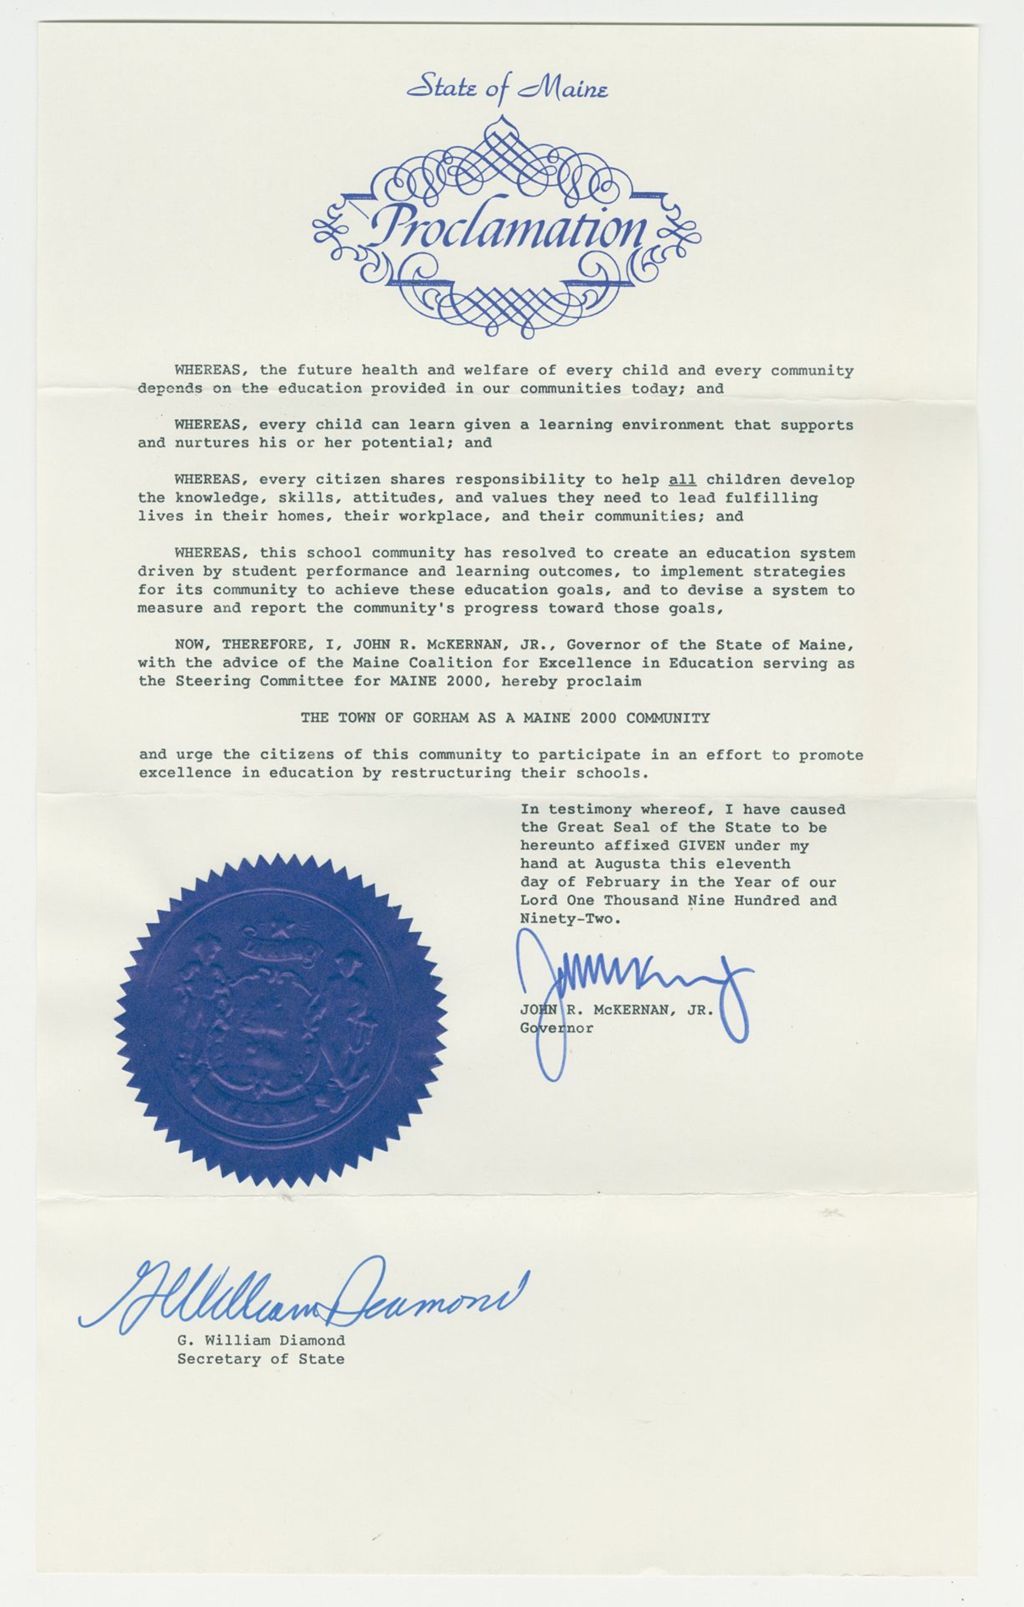 State of Maine
Proclamation
WHEREAS, the future health and welfare of every child and every community
depends on the education provided in our communities today; and
WHEREAS, every child can learn given a learning environment that supports
and nurtures his or her potential; and
WHEREAS, every citizen shares responsibility to help all children develop
the knowledge, skills, attitudes, and values they need to lead fulfilling
lives in their homes, their workplace, and their communities; and
WHEREAS, this school community has resolved to create an education system
driven by student performance and learning outcomes, to implement strategies
for its community to achieve these education goals, and to devise a system to
measure and report the community's progress toward those goals,
NOW, THEREFORE, I, JOHN R. McKERNAN, JR., Governor of the State of Maine,
with the advice of the Maine Coalition for Excellence in Education serving as
the Steering Committee for MAINE 2000, hereby proclaim
THE TOWN OF GORHAM AS A MAINE 2000 COMMUNITY
and urge the citizens of this community to participate in an effort to promote
excellence in education by restructuring their schools.
In testimony whereof, I have caused
the Great Seal of the State to be
hereunto affixed GIVEN under my
hand at Augusta this eleventh
day of February in the Year of our
Lord One Thousand Nine Hundred and
Ninety-Two.
JOHN R. McKERNAN, JR.
Governor
G William Diamond
G. William Diamond
Secretary of State